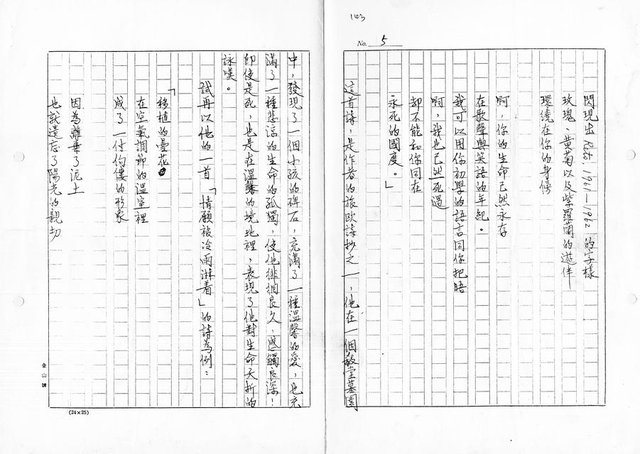 143
No. 5
閃現出 Rita. 1961—1962 的字樣
玫瑰、黃菊以及紫羅蘭的遊伴
環繞在你的身傍
啊，你的生命已然永存
在歌聲與笑語的年紀。
我可以用你初學的語言同你把晤
啊，我也已然死過
却不能和你同在
永死的國度。」
這首詩，是作者的旅歐詩抄之一，他在一個教堂墓園
中，發現了一個小孩的碑石，充滿了一種溫馨的愛，也充
滿了一種悲涼的生命的孤獨，使他徘徊良久，感觸良深；
即使是死，也是在溫馨的境地裡，表現了他對生命夭折的
詠嘆。
試再以他的一首「情願被冷雨淋着」的詩為例：
「移植的曇花
在空氣調節的溫室裡
成了一付佝僂的形象
因為離棄了泥土
也就遺忘了陽光的親切
金山牌
(24×25)